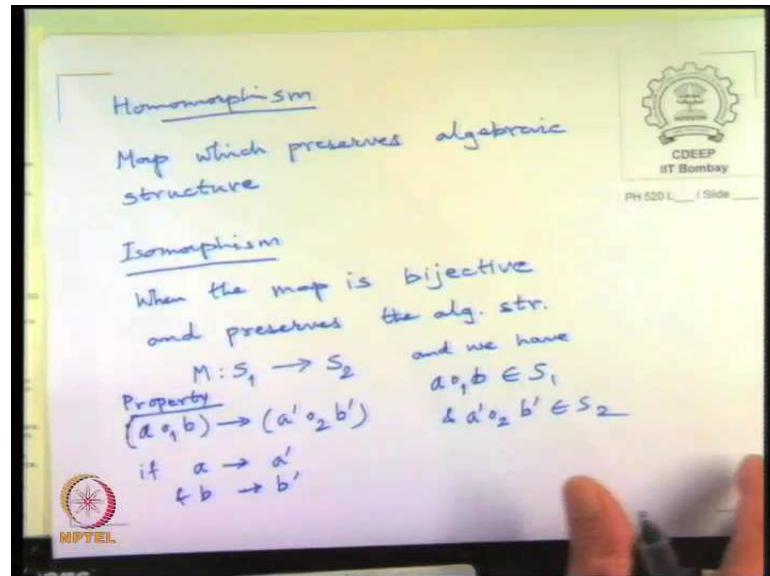 Homomorphism
Map which preserves algebraic
structure
CDEEP
IIT Bombay
PH 520 L___ / Slide ___
Isomorphism
When the map is bijective
and preserves the alg. str.
M : S₁ → S₂ and we have
Property a o₁ b ∈ S₁
(a o₁ b) → (a' o₂ b') & a' o₂ b' ∈ S₂
if a → a'
& b → b'
NPTEL